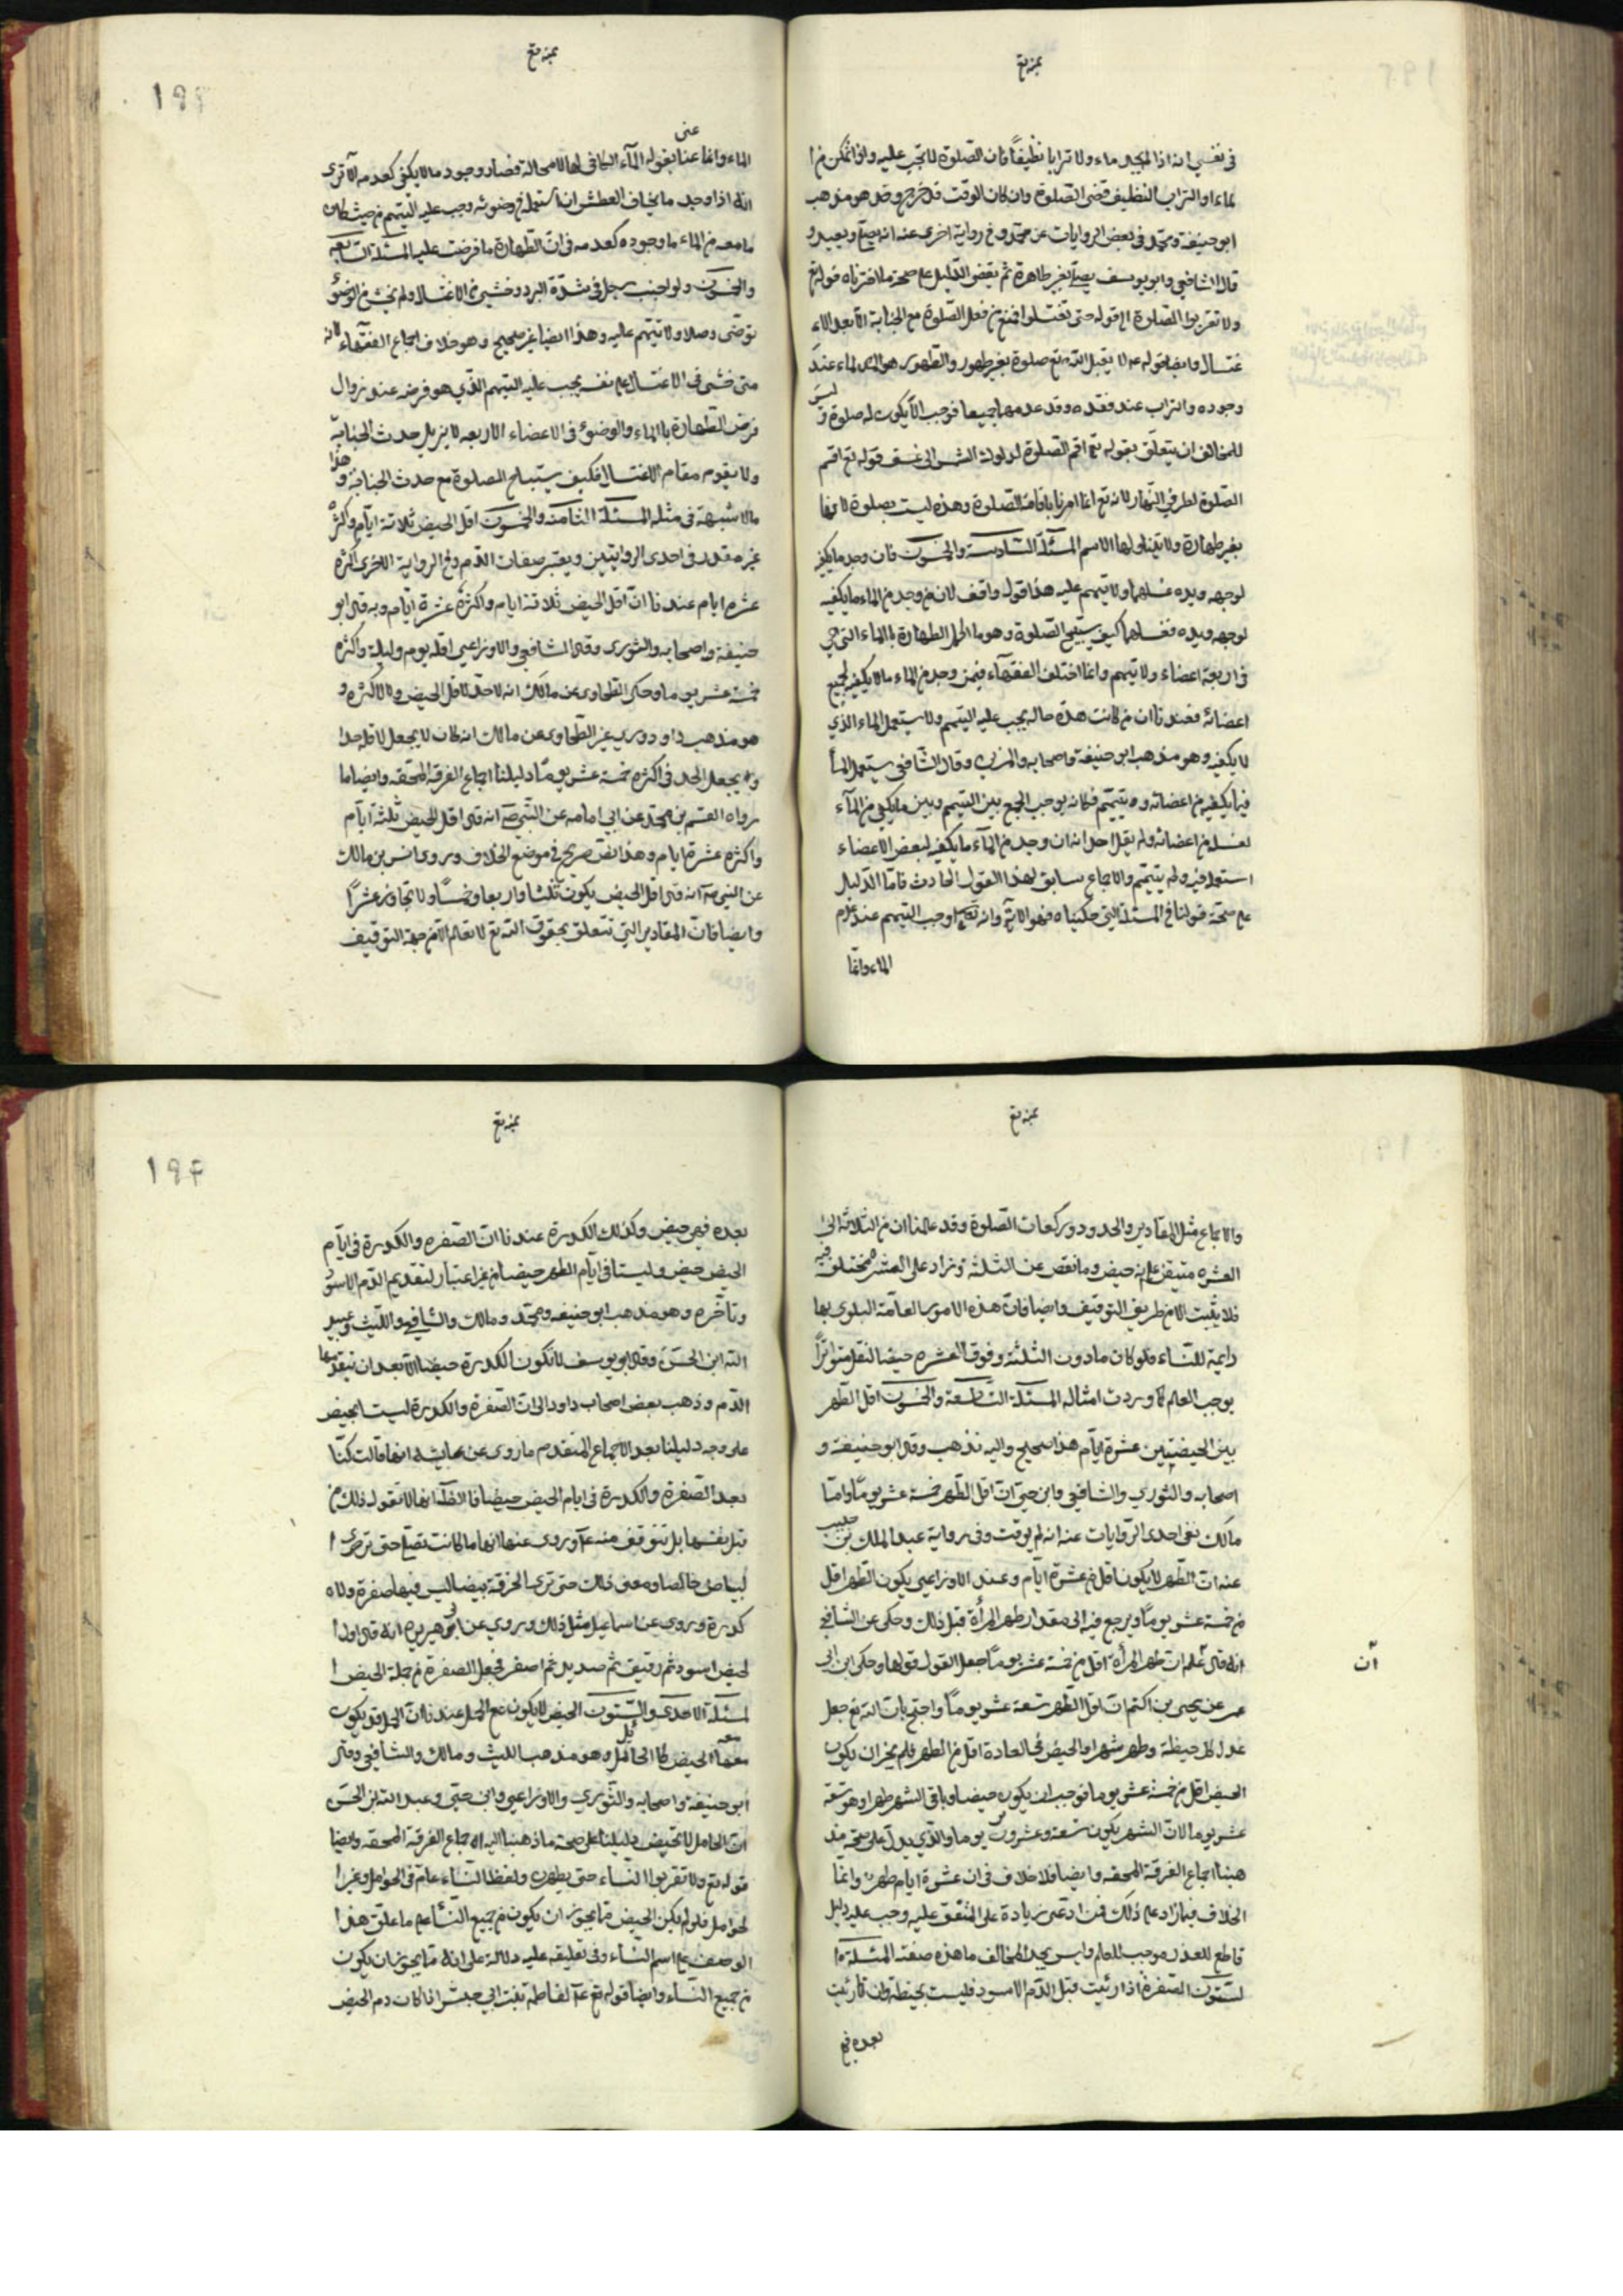 في نفسي انه اذا لم يجد ماء ولا ترابا نظيفاً فان الصلوة لا تجب عليه واذا تمكن من ا
لماء او التراب النظيف قضى الصلوة وان كان الوقت قد خرج وهو مذهب
ابو حنيفة ومحمد في بعض الروايات عن محمد وفي رواية اخرى عنه انه يصلي ويعيد و
قال الشافعي وابو يوسف يصلي بغير طاهرة ثم يقضي الدليل على صحة ما اخترناه قوله تع
ولا تقربوا الصلوة الى قوله حتى تغتسلوا فمنع من فعل الصلوة مع الجنابة الا بعد الاء
غتسال وايضا قوله عم لا يقبل الله تع صلوة بغير طهور والطهور هو الماء عند
وجوده والتراب عند فقده وقد عدمهما جميعا فوجب الا يكون له صلوة و ليس
للمخالف ان يتعلق بقوله تع اقم الصلوة لدلوك الشمس الى غسق قوله تع اقم
الصلوة لطرفي النهار لانه تع انما امرنا باقامة الصلوة وهذه ليست بصلوة لانها
بغير طهارة ولا يتناولها الاسم المسئلة السادسة والخمسون فان وجد ما يكفي
لوجهه ويده غسلهما ولا تيمم عليه هذا قول واقف لان من وجد من الماء ما يكفيه
لوجهه ويده فغسلهما كيف يستبيح الصلوة وهو ما اكمل الطهارة بالماء التي هي
في اربعة اعضاء ولا تيمم وانما اختلف الفقهاء فيمن وجد من الماء ما لا يكفيه لجميع
اعضائه فعندنا ان من كانت هذه حاله يجب عليه التيمم ولا يستعمل الماء الذي
لا يكفيه وهو مذهب ابو حنيفة واصحابه والمزني وقال الشافعي يستعمل الما
فيما يكفيه من اعضائه و يتيمم فكانه يوجب الجمع بين التيمم وبين ما يكفي من الماء
لغسله من اعضائه ولم يقل احد انه ان وجد من الماء ما يكفيه لبعض الاعضاء
استعمله فيه ولم يتيمم والاجماع سابق لهذا القول الحادث فاما الدليل
على صحة قولنا في المسئلة التي حكيناه فهو الاية وانه تع اوجب التيمم عند عدم
الماء وانما
الماء وانما عنا بقوله الماء الكافي لها لا محالة فصار وجود ما لا يكفي كعدمه الا ترى
انه اذا وجد ما يخاف العطش ان استعمله في وضوئه وجب عليه التيمم من حيث كان
ما معه من الماء ما وجوده كعدمه في ان الطهارة ما فرضت عليه المسئلة السابعه
والخمسون ولو اجنب رجل في شدة البرد وخشي من الاغتسال ولم يخش من الوضؤ
توضى وصلا ولا تيمم عليه وهذا ايضا غير صحيح وهو خلاف اجماع الفقهاء لانه
متى خشى في الاغتسال على نفسه يجب عليه التيمم الذي هو فرضه عند زوال
فرض الطهارة بالماء والوضوء في الاعضاء الاربعه لا يزيل حدث الجنابة
ولا يقوم مقام الاغتسال فكيف يستباح الصلوة مع حدث الجنابة و هذا
مالا شبهة في مثله المسئلة الثامنه والخمسون اقل الحيض ثلاثة ايام واكثره
غيره مقدر في احدى الروايتين ويعتبر صفات الدم وفي الرواية الاخرى اكثره
عشره ايام عندنا ان اقل الحيض ثلاثة ايام واكثره عشرة ايام وبه قال ابو
حنيفة واصحابه والثوري وقال الشافعي والاوزاعي اقله يوم وليلة واكثره
خمسة عشر يوما وحكى الطحاوى عن مالك انه لا حد لا قل الحيض ولا لاكثره و
هو مذهب داود وروي غير الطحاوى عن مالك انه كان لا يجعل لاقله حدا
و يجعل الحد في اكثره خمسة عشر يوما دليلنا اجماع الفرقة المحقه وايضا ما
رواه القسم بن محمد عن ابي امامه عن النبي ص انه قال اقل الحيض ثلثة ايام
واكثره عشرة ايام وهذا نص صريح في موضع الخلاف وروى انس بن مالك
عن النبي ص انه قال اقل الحيض يكون ثلثا واربعا وخمسا ولا يتجاوز عشرا
وايضا فان المقادير التي تتعلق بحقوق الله تع لا تعلم الا من جهة التوقيف
والاجماع مثل المقادير والحدود وركعات الصلوة وقد علمنا ان من الثلاثة الى
العشره متيقن على انه حيض وما نقص عن الثلثة وزاد على العشره مختلف فيه
فلا يثبت الا من طريق التوقيف وايضا فان هذه الامور العامة البلوى بها
دايمة للنساء فلو كان مادون الثلثة وفوق العشره حيضا لنقل متواتراً
يوجب العلم كما وردت امثاله المسئلة التاسعة والخمسون اقل الطهر
بين الحيضتين عشرة ايام هذا صحيح واليه نذهب وقال ابو حنيفة و
اصحابه والثوري والشافعي وابن حي ان اقل الطهر خمسة عشر يوما واما
مالك نفى احدى الروايات عنه انه لم يوقت وفي رواية عبد الملك بن حبيب
عنه ان الطهر لا يكون اقل من عشرة ايام وعند الاوزاعي يكون الطهر اقل
من خمسة عشر يوما ويرجع فيه الى مقدار طهر المرأة قبل ذلك وحكى عن الشافعي
انه قال علم ان طهر المرأة اقل من خمسة عشر يوما جعل القول قولها وحكى ابن ابى
عمر عن يحيى بن اكثم ان اقل الطهر تسعة عشر يوما واحتج بان الله تع جعل
عدل كل حيضة وطهر شهرا والحيض في العادة اقل من الطهر فلم يجز ان يكون
الحيض اقل من خمسة عشر يوما فوجب ان يكون حيضا وباقي الشهر طهرا وهو تسعة
عشر يوما لان الشهر يكون تسعة وعشرون يوما والذي يدل على صحة مذ
هبنا اجماع الفرقة المحقه وايضا فلا خلاف في ان عشرة ايام طهر وانما
الخلاف فيما زاد على ذلك فمن ادعى زيادة على المتفق عليه وجب عليه دليل
قاطع للعذر موجب للعلم وليس يجد المخالف ما هذه صفته المسئلة ا
لستون الصفرة اذا رئيت قبل الدم الاسود فليست بحيضة وان رئيت
بعده فهي
ان
بعده فهي حيض وكذلك الكدرة عندنا ان الصفره والكدرة في ايام
الحيض حيض وليستا في ايام الطهر حيضا من غير اعتبار لتقديم الدم الاسود
وتاخره وهو مذهب ابو حنيفه ومحمد ومالك والشافعي والليث وعبيد
الله ابن الحسن وقال ابو يوسف لا تكون الكدرة حيضا الا بعد ان يتقدمها
الدم وذهب بعض اصحاب داود الى ان الصفرة والكدرة ليست بحيض
على وجه دليلنا بعد الاجماع المتقدم ما روى عن عايشه انها قالت كنا
نعد الصفرة والكدرة في ايام الحيض حيضا فالظاهر انها لا تقول ذلك من
قبل نفسها بل بتوقيف منه ع وروى عنها انها ما كانت تصلي حتى ترى ا
لبياض خالصا ومعنى ذلك حتى ترى الخرقة بيضا ليس فيها صفرة ولا
كدرة وروى عن اسماعيل مثل ذلك وروي عن ابي هريره انه قال اول ا
لحيض اسود ثم رقيق ثم صديد ثم اصفر فجعل الصفرة من جملة الحيض ا
لمسئلة الاحدى والستون الحيض لا يكون مع الحمل عندنا ان الحمل قد يكون
معه الحيض كما الحائل وهو مذهب الليث ومالك والشافعي وقال
ابو حنيفة واصحابه والثوري والاوزاعي وابن حي وعبد الله بن الحسن
ان الحامل لا تحيض دليلنا على صحة ما ذهبنا اليه اجماع الفرقة المحقه وايضا
قوله تع ولا تقربوا النساء حتى يطهرن ولفظ النساء عام في الحوامل وغير ا
لحوامل فلو لم يكن الحيض مما يجوز ان يكون من جميع النساء علم ما علق هذا
الوصف على اسم النساء وفي تعليقه عليه دلالة على انه مما يجوز ان يكون
من جميع النساء وايضا قوله ع لفاطمه بنت ابي حبيش اذا كان دم الحيض